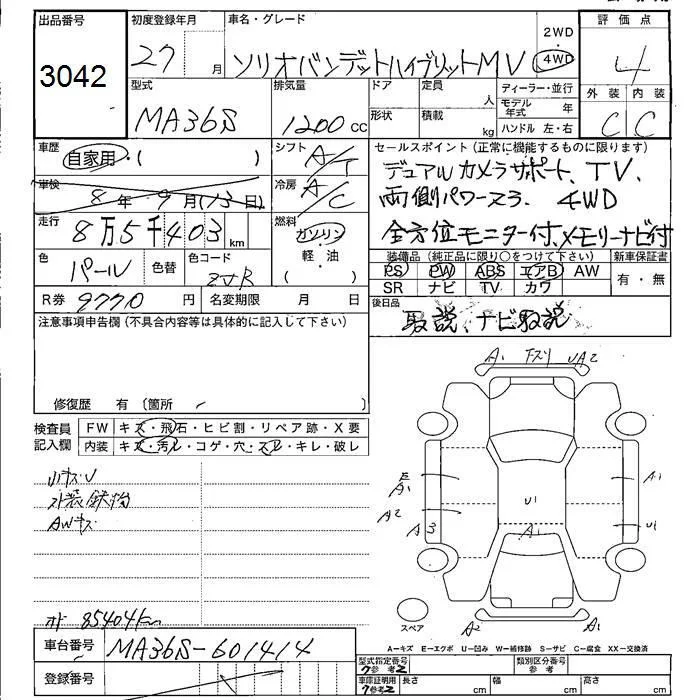 出品番号 初度登録年月 車名・グレード 2WD 評価点
3042 27 月 ソリオバンデットハイブリットMV 4WD 4
型式 排気量 ドア 定員 ディーラー・並行 外装 内装
人 モデル年式 年
MA36S 1200 cc 形状 積載 kg ハンドル 左・右 C C
車歴 自家用・( ) シフト A/T セールスポイント (正常に機能するものに限ります)
デュアルカメラサポート、TV、
車検 8年9月(13日) 冷房 A/C 両側パワースラ. 4WD
走行 8万5千403km 燃料 ガソリン 全方位モニター付、メモリーナビ付
色 パール 色替 色コード ZJR 軽・油 ( )
装備品 (純正品に限り○をつけて下さい) 新車保証書
PS PW ABS エアB AW 有・無
SR ナビ TV カワ
R券 9770 円 名変期限 月 日 後日品
取説、ナビ取説
注意事項申告欄 (不具合内容等は具体的に記入して下さい)
A1 下ズリ UA2
修復歴 有 (箇所
検査員 FW キズ・飛石・ヒビ割・リペア跡・X要
記入欄 内装 キズ・汚レ・コゲ・穴・スレ・キレ・破レ
小キズU
外装鉄粉
AWキズ
E
A1 A1
U1
A2
A3 A1 U1
オド 85404km
スペア A2 A1
A−キズ E−エクボ U−凹み W−補修跡 S−サビ C−腐食 XX−交換済
車台番号 MA36S-601414
型式指定番号 ク参考2 類別区分番号 参考
登録番号 車庫証明用 ク参考2 長さ cm 幅 cm 高さ cm